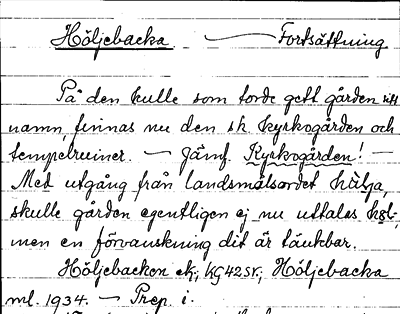 Höljebacka — Fortsättning
På den kulle som torde gett gården sitt
namn, finnas nu den sk. kyrkogården och
tempelruiner. — Jämf. Kyrkogården! —
Med utgång från landsmålsordet hälja,
skulle gården egentligen ej nu uttalas
men en förvanskning dit är tänkbar.
Höljebacken ek, KG42SV, Höljebacka
ml. 1934. — Prep. i.